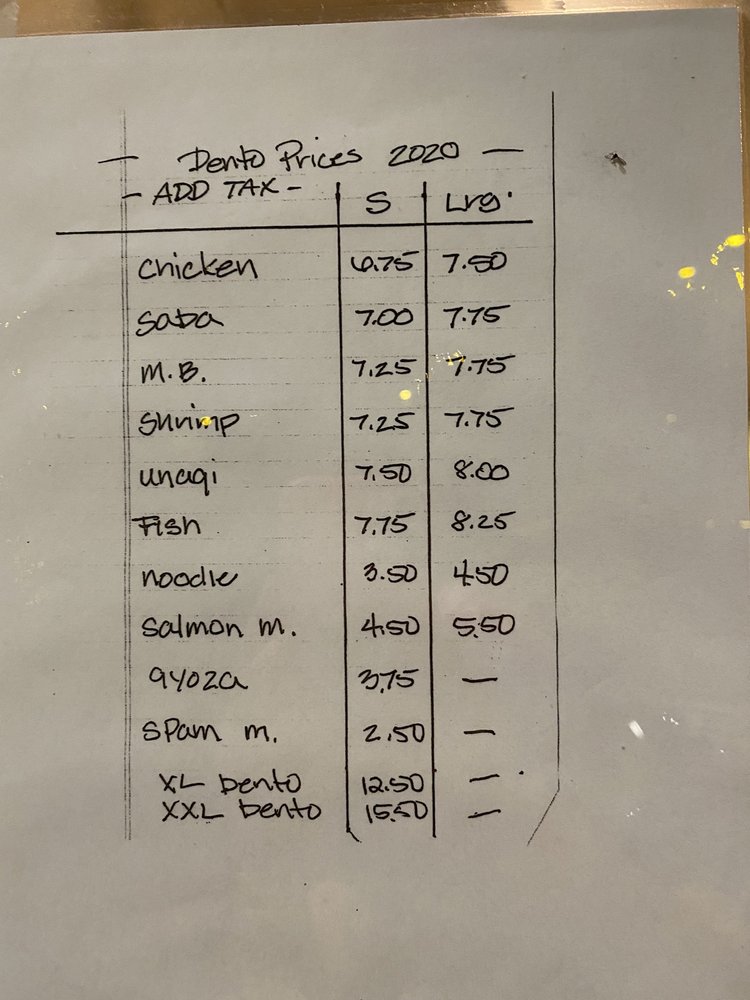 — Bento Prices 2020 —
- ADD TAX - S Lrg.
chicken 6.75 7.50
saba 7.00 7.75
M.B. 7.25 7.75
Shrimp 7.25 7.75
unagi 7.50 8.00
Fish 7.75 8.25
noodle 3.50 4.50
Salmon m. 4.50 5.50
gyoza 3.75 —
Spam m. 2.50 —
XL bento 12.50 —
XXL bento 15.50 —